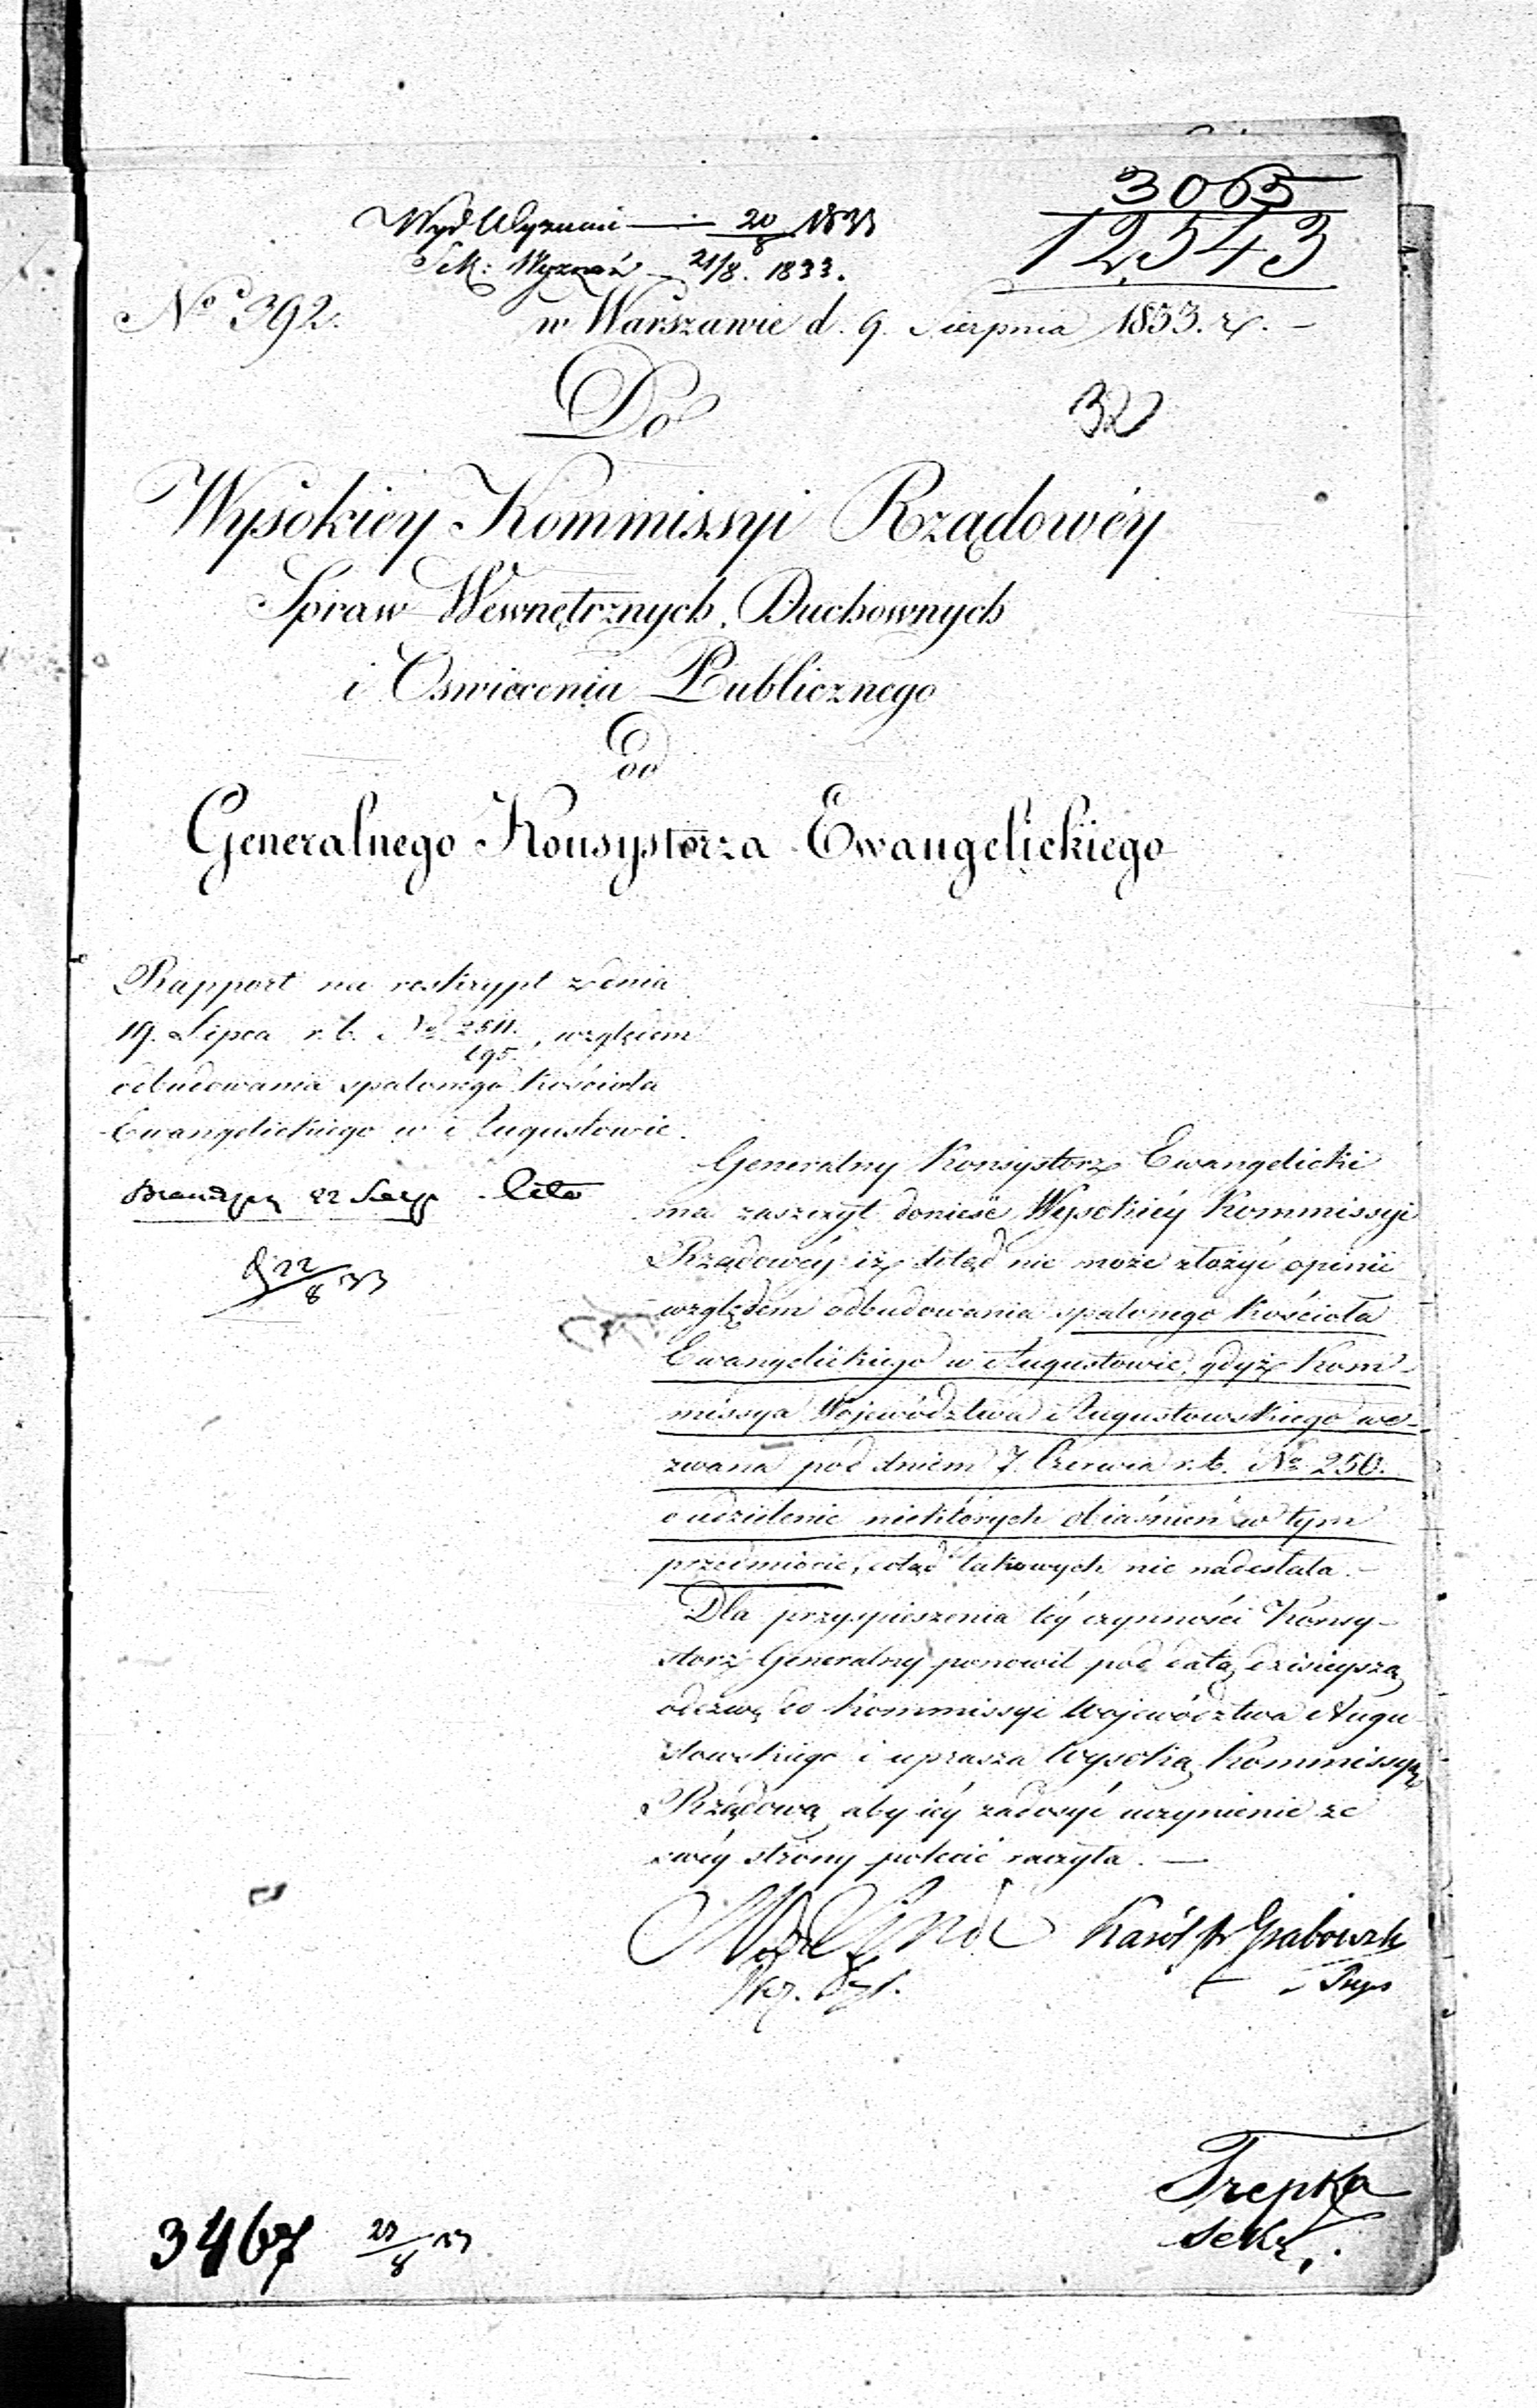 3065
12,543
Wyd Wyznań — 20/8 1833
Sek: Wyznań — 21/8. 1833.
No 392.
w Warszawie d. 9. Sierpnia 1833. r. –
Do
32
Wysokiey Kommissyi Rządowéy
Spraw Wewnętrznych, Duchownych
i Oswiecenia Publicznego
Od
Generalnego Konsystorza Ewangelickiego
Rapport na reskrypt z dnia
19. Lipca r. b. No 2511./195., względem
odbudowania spalonego kościoła
Ewangelickiego w Augustowie.
22
22/8 33
Generalny Konsystorz Ewangelicki
ma zaszczyt donieść Wysokiéy Kommissyi
Rządowéy iż dotąd nie może złożyć opinii
względem odbudowania spalonego kościoła
Ewangelickiego w Augustowie, gdyż Kom-
missya Województwa Augustowskiego we-
zwana pod dniem 7. Czerwca r. b. No 250.
o udzielenie niektórych obiaśnień w tym
przedmiocie, dotąd takowych nie nadesłała. –
Dla przyspieszenia téy czynności Konsy-
storz Generalny ponowił pod datą dzisieyszą
odezwę do Kommissyi Województwa Augu
stowskiego i uprasza Wysoką Kommissyą
Rządową aby iéy zadosyć uczynienie ze
swéy strony polecić raczyła. —
Linde Karól hr Grabowski
Prezes
Trepka
Sekr.
3467 27/8 33